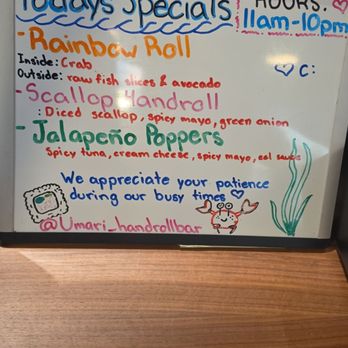 Todays Specials
HOURS:
11am-10pm
- Rainbow Roll
Inside: Crab
Outside: raw fish slices & avocado
C:
- Scallop Handroll
: Diced scallop, spicy mayo, green onion
- Jalapeño Poppers
Spicy tuna, cream cheese, spicy mayo, eel sauce
We appreciate your patience
during our busy times
@Umari_handrollbar